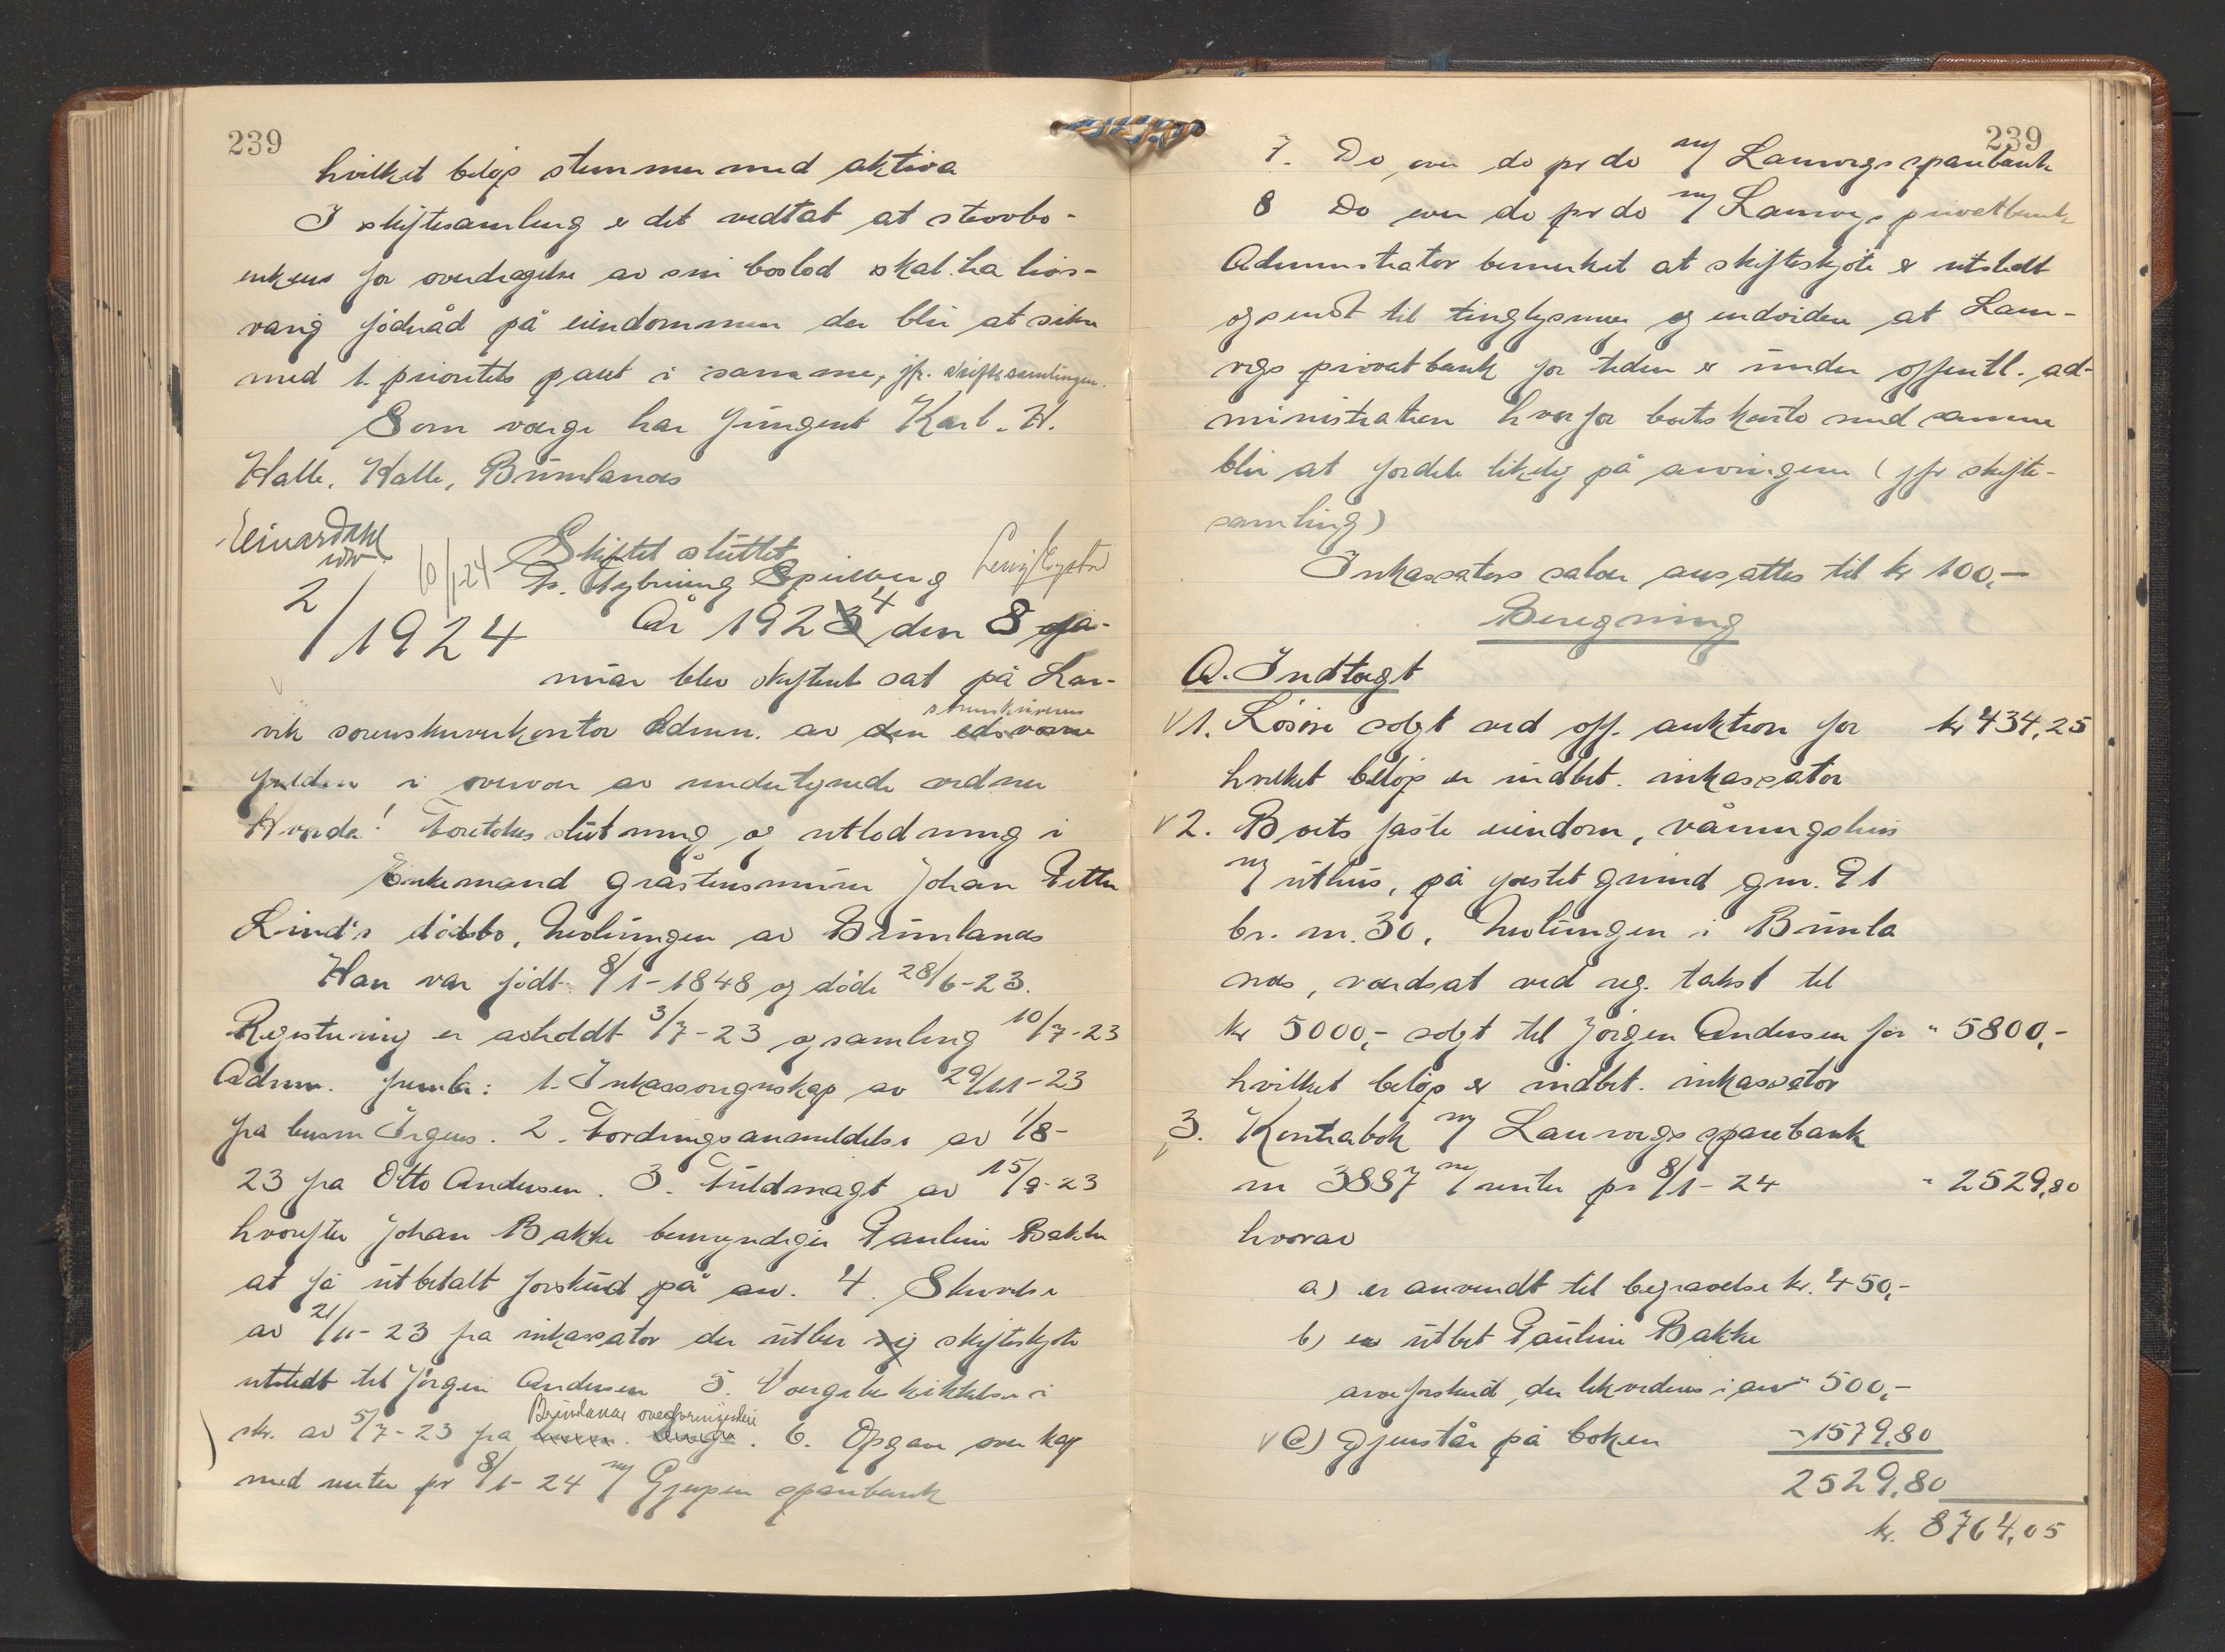 239
hvilket beløp stemmer med aktiva
I skiftesamling er det vedtat at stervbo-
enken for overdragelse av sin boslod skal ha livs-
varig föderåd på eiendommen der blir at sikre
med 1. prioritets pant i samme, jfr. skiftesamlingen.
Som værge har fungert Karl. H.
Halle, Halle, Brunlanes
Einar Dahl
Skiftet sluttet
10/1-24
2/1924
År 1924 den 8 ja-
nuar blev skifteret sat på Lar-
vik sorenskriverkontor Admin. av sorenskriveren
i overvær av undertegnede vidner
Hvorda! Foretokes slutning og utlodning i
Enkemand gråstensmurer Johan Petter
Lind's dödsbo, Nevlungen av Brunlanes
Han var född 8/1-1848 og döde 28/6-23.
Registrering er avholdt 3/7-23 og samling 10/7-23
Admin. fremla: 1. Inkassoregnskap av 29/11-23
fra lensm Irgens. 2. Fordringsanmeldelse av 1/8-
23 fra Otto Andersen. 3. Fuldmagt av 15/9-23
hvorefter Johan Bakke bemyndiger Pauline Bakke
at få utbetalt forskud på arv. 4. Skrivelse
av 21/11-23 fra inkassator der utber sig skifteskjøte
utstedt til Jørgen Andersen 5. Værgebeskikkelse i
Brunlanes overformynderi
skr. av 5/7-23 fra . 6. Opgave over kap
med renter pr 8/1-24 m/ Gjerpen sparebank
239
7. Do over do pr do m/ Laurvigs sparebank
8 Do over do pr do m/ Laurvigs privatbank
Administrator bemerket at skifteskjöte er utstedt
og sendt til tinglysning og endvidere at Laur-
vigs privatbank for tiden er under offentl. ad-
ministration hvorfor boets konto med samme
blir at fordele likelig på arvingene (jfr skifte-
samling)
Inkassators salær ansattes til kr 100,-
Beregning
A. Indtægt
1. Lösöre solgt ved off. auktion for kr 434,25
hvilket beløp er indbet. inkassator
2. Boets faste eiendom, våningshus
m/ uthus, på festet grund gnr. 91
br. nr. 30, Nevlungen i Brunla
nes, værdsat ved reg. takst til
kr 5000,- solgt til Jörgen Andersen for " 5800,-
hvilket beløp er indbet. inkassator
3. Kontrabok m/ Laurvigs sparebank
nr 3887 m/ renter pr 8/1-24 " 2529,80
hvorav
a) er anvendt til begravelse kr. 450,-
b) er utbet Pauline Bakke
arveforskud, der likvideres i arv " 500,-
c) Gjenstår på boken " 1579,80
2529,80
kr. 8764,05